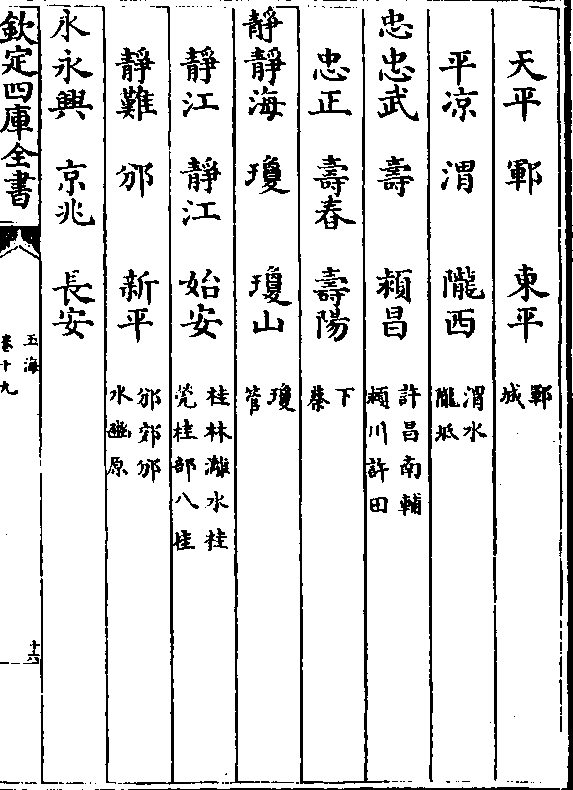 天平　鄆　東平　鄆城
平凉　渭　隴西　渭水隴坻
忠忠武　壽　頴昌　許昌南輔頴川許田
忠正　壽春　壽陽　下蔡
靜靜海　瓊　瓊山　瓊管
靜江　靜江　始安　桂林灕水桂筦桂部八桂
靜難　邠　新平　邠郊邠水豳原
永永興　京兆　長安
欽定四庫全書
玉海
卷十九
十六